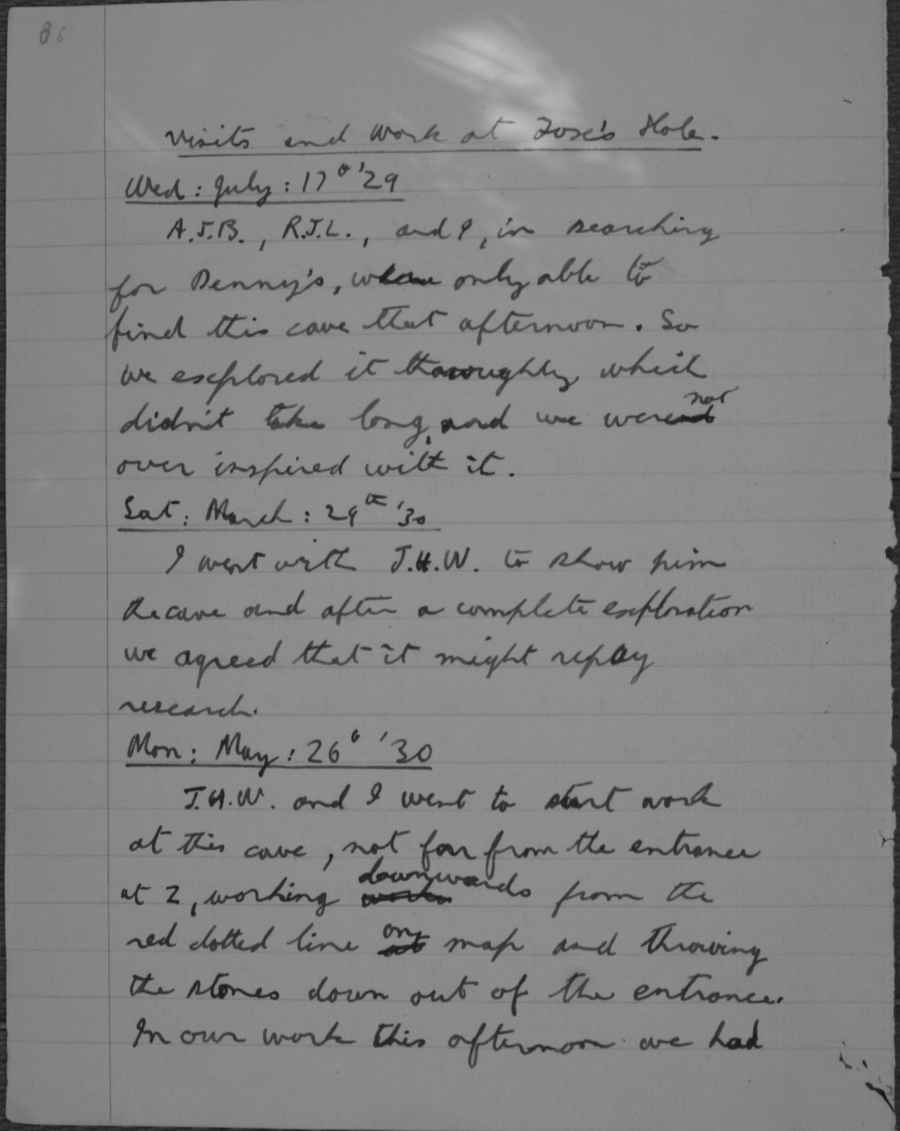 86
Visits and Work at Foxe's Hole.
Wed: July: 17th '29
A.J.B., R.J.L., and I, in searching
for Denny's, were only able to
find this cave that afternoon. So
we explored it thoroughly which
didn't take long, and we were not
over inspired with it.
Sat: March: 29th '30
I went with J.H.W. to show him
the cave and after a complete exploration
we agreed that it might repay
research.
Mon: May: 26th '30
J.H.W. and I went to start work
at this cave, not far from the entrance
at Z, working downwards from the
red dotted line on map and throwing
the stones down out of the entrance.
In our work this afternoon we had